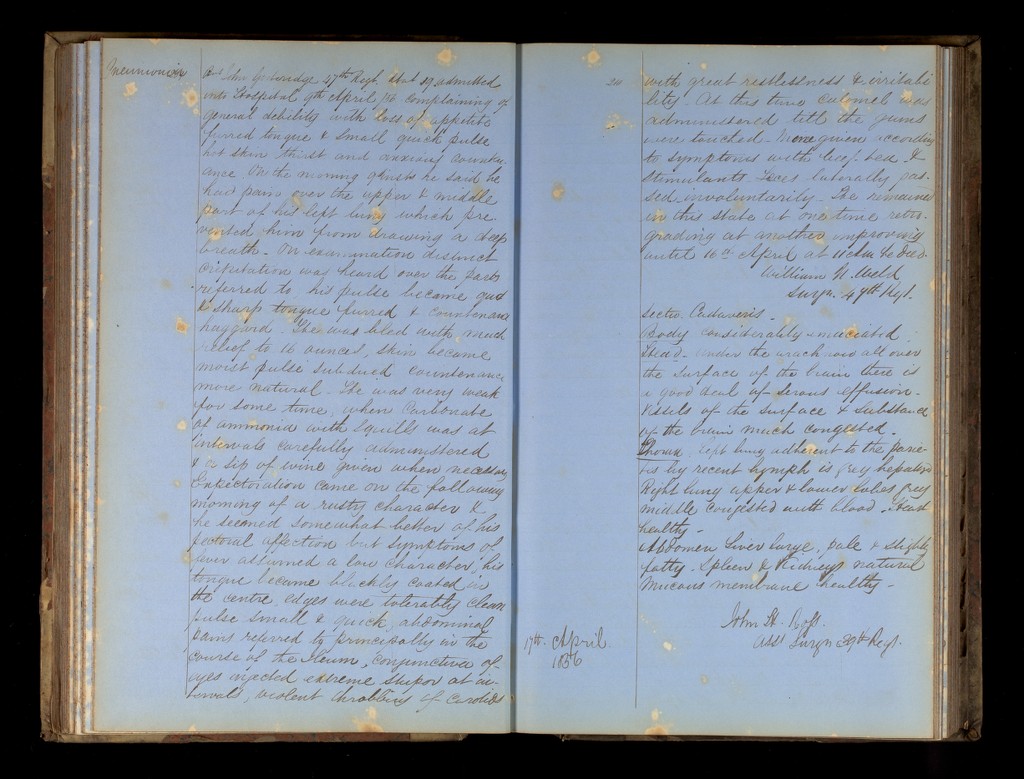 Pneumonia
John 47th Regt. Aet 29 admitted
into Hospital 9th April /56 complaining of
general debility with loss of appetite
furred tongue & small quick pulse
hot skin thirst and anxious counten-
ance. On the morning he said he
had pain over the upper & middle
part of his left lung which pre
vented him from drawing a deep
breath. On examination distinct
crepitation was heard over the parts
referred to his pulse became quick
& sharp tongue furred & countenance
haggard. He was bled with much
relief to 16 ounces, skin became
moist pulse subdued countenance
more natural. He was very weak
for some time, when Carbonate
of ammonia with Squills was at
intervals carefully administered
& a sip of wine given when necessary
Expectoration came on the following
morning of a rusty character &
he seemed somewhat better of his
pectoral affection but symptoms of
fever assumed a low character, his
tongue became blackly coated in
the centre, edges were tolerably clean
pulse small & quick, abdominal
pains referred to principally in the
course of the Ileum, conjunctiva of
eyes injected extreme stupor at in-
tervals, violent throbbing of carotids
211
with great restlessness & irritabi
lity. At this time calomel was
administered till the gums
were touched. given according
to symptoms with beef tea &
Stimulants. Feces latterly pas-
sed involuntarily. He remained
in this state at one time retro-
grading at another improving
until 16th April at 11 a.m. he died.
William N. Weld
Surgn. 47th Regt.
Sectio Cadaveris.
Body considerably emaciated.
Head. Under the arachnoid all over
the surface of the brain there is
a good deal of serous effusion.
Vessels of the surface & substance
of the brain much congested.
Thorax. left lung adherent to the parie-
tes by recent lymph is grey hepatized
Right lung upper & lower lobes grey
middle congested with blood. Heart
healthy.
Abdomen Liver large, pale & slightly
fatty. Spleen & Kidneys natural
Mucous membrane healthy.
17th April
1856
John H.
Asst Surgn 39th Regt.